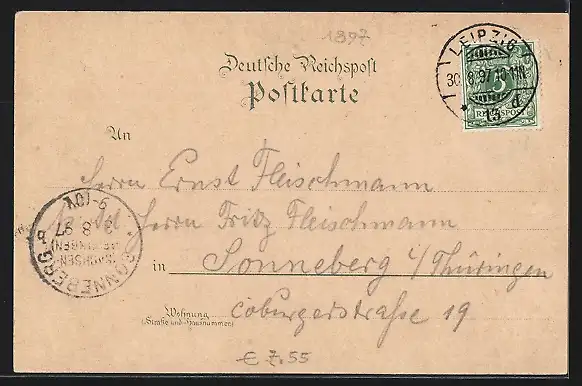 1897
Deutsche Reichspost
Postkarte
LEIPZIG
30.8.97.10-11N.
* 13 d.
5
REICHSPOST
An
Herrn Ernst Fleischmann
Herrn Fritz Fleischmann
9-10V
3 8 97
SACHSEN-
MEININGEN
SONNEBERG
in Sonneberg i/Thüringen
Wohnung
(Straße und Hausnummer)
Coburgerstraße 19
€ 7.55